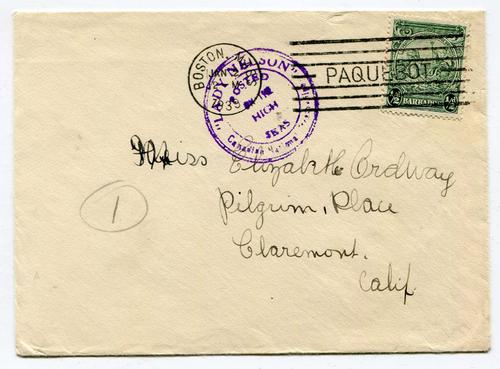 BOSTON, M
JAN
1939
PAQUEBOT
"LADY NELSON"
POSTED
ON THE
HIGH
SEAS
Canadian Nationa
½ BARBADOS ½
Miss Elizabeth Ordway
Pilgrim, Place
Claremont.
Calif.
1